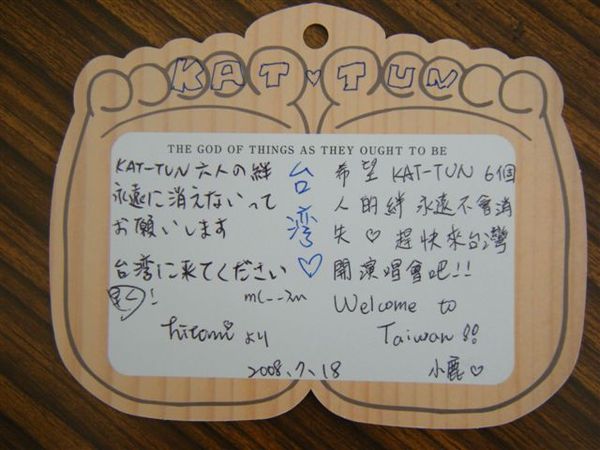 KAT♡TUN
THE GOD OF THINGS AS THEY OUGHT TO BE
KAT-TUN 六人の絆
永遠に消えないって
お願いします
台湾に来てください
早く!
m(_ _)m
hitomi より
台湾♡
希望 KAT-TUN 6個
人的絆 永遠不會消
失♡ 趕快來台灣
開演唱會吧!!
Welcome to
Taiwan!!
小鹿♡
2008.7.18